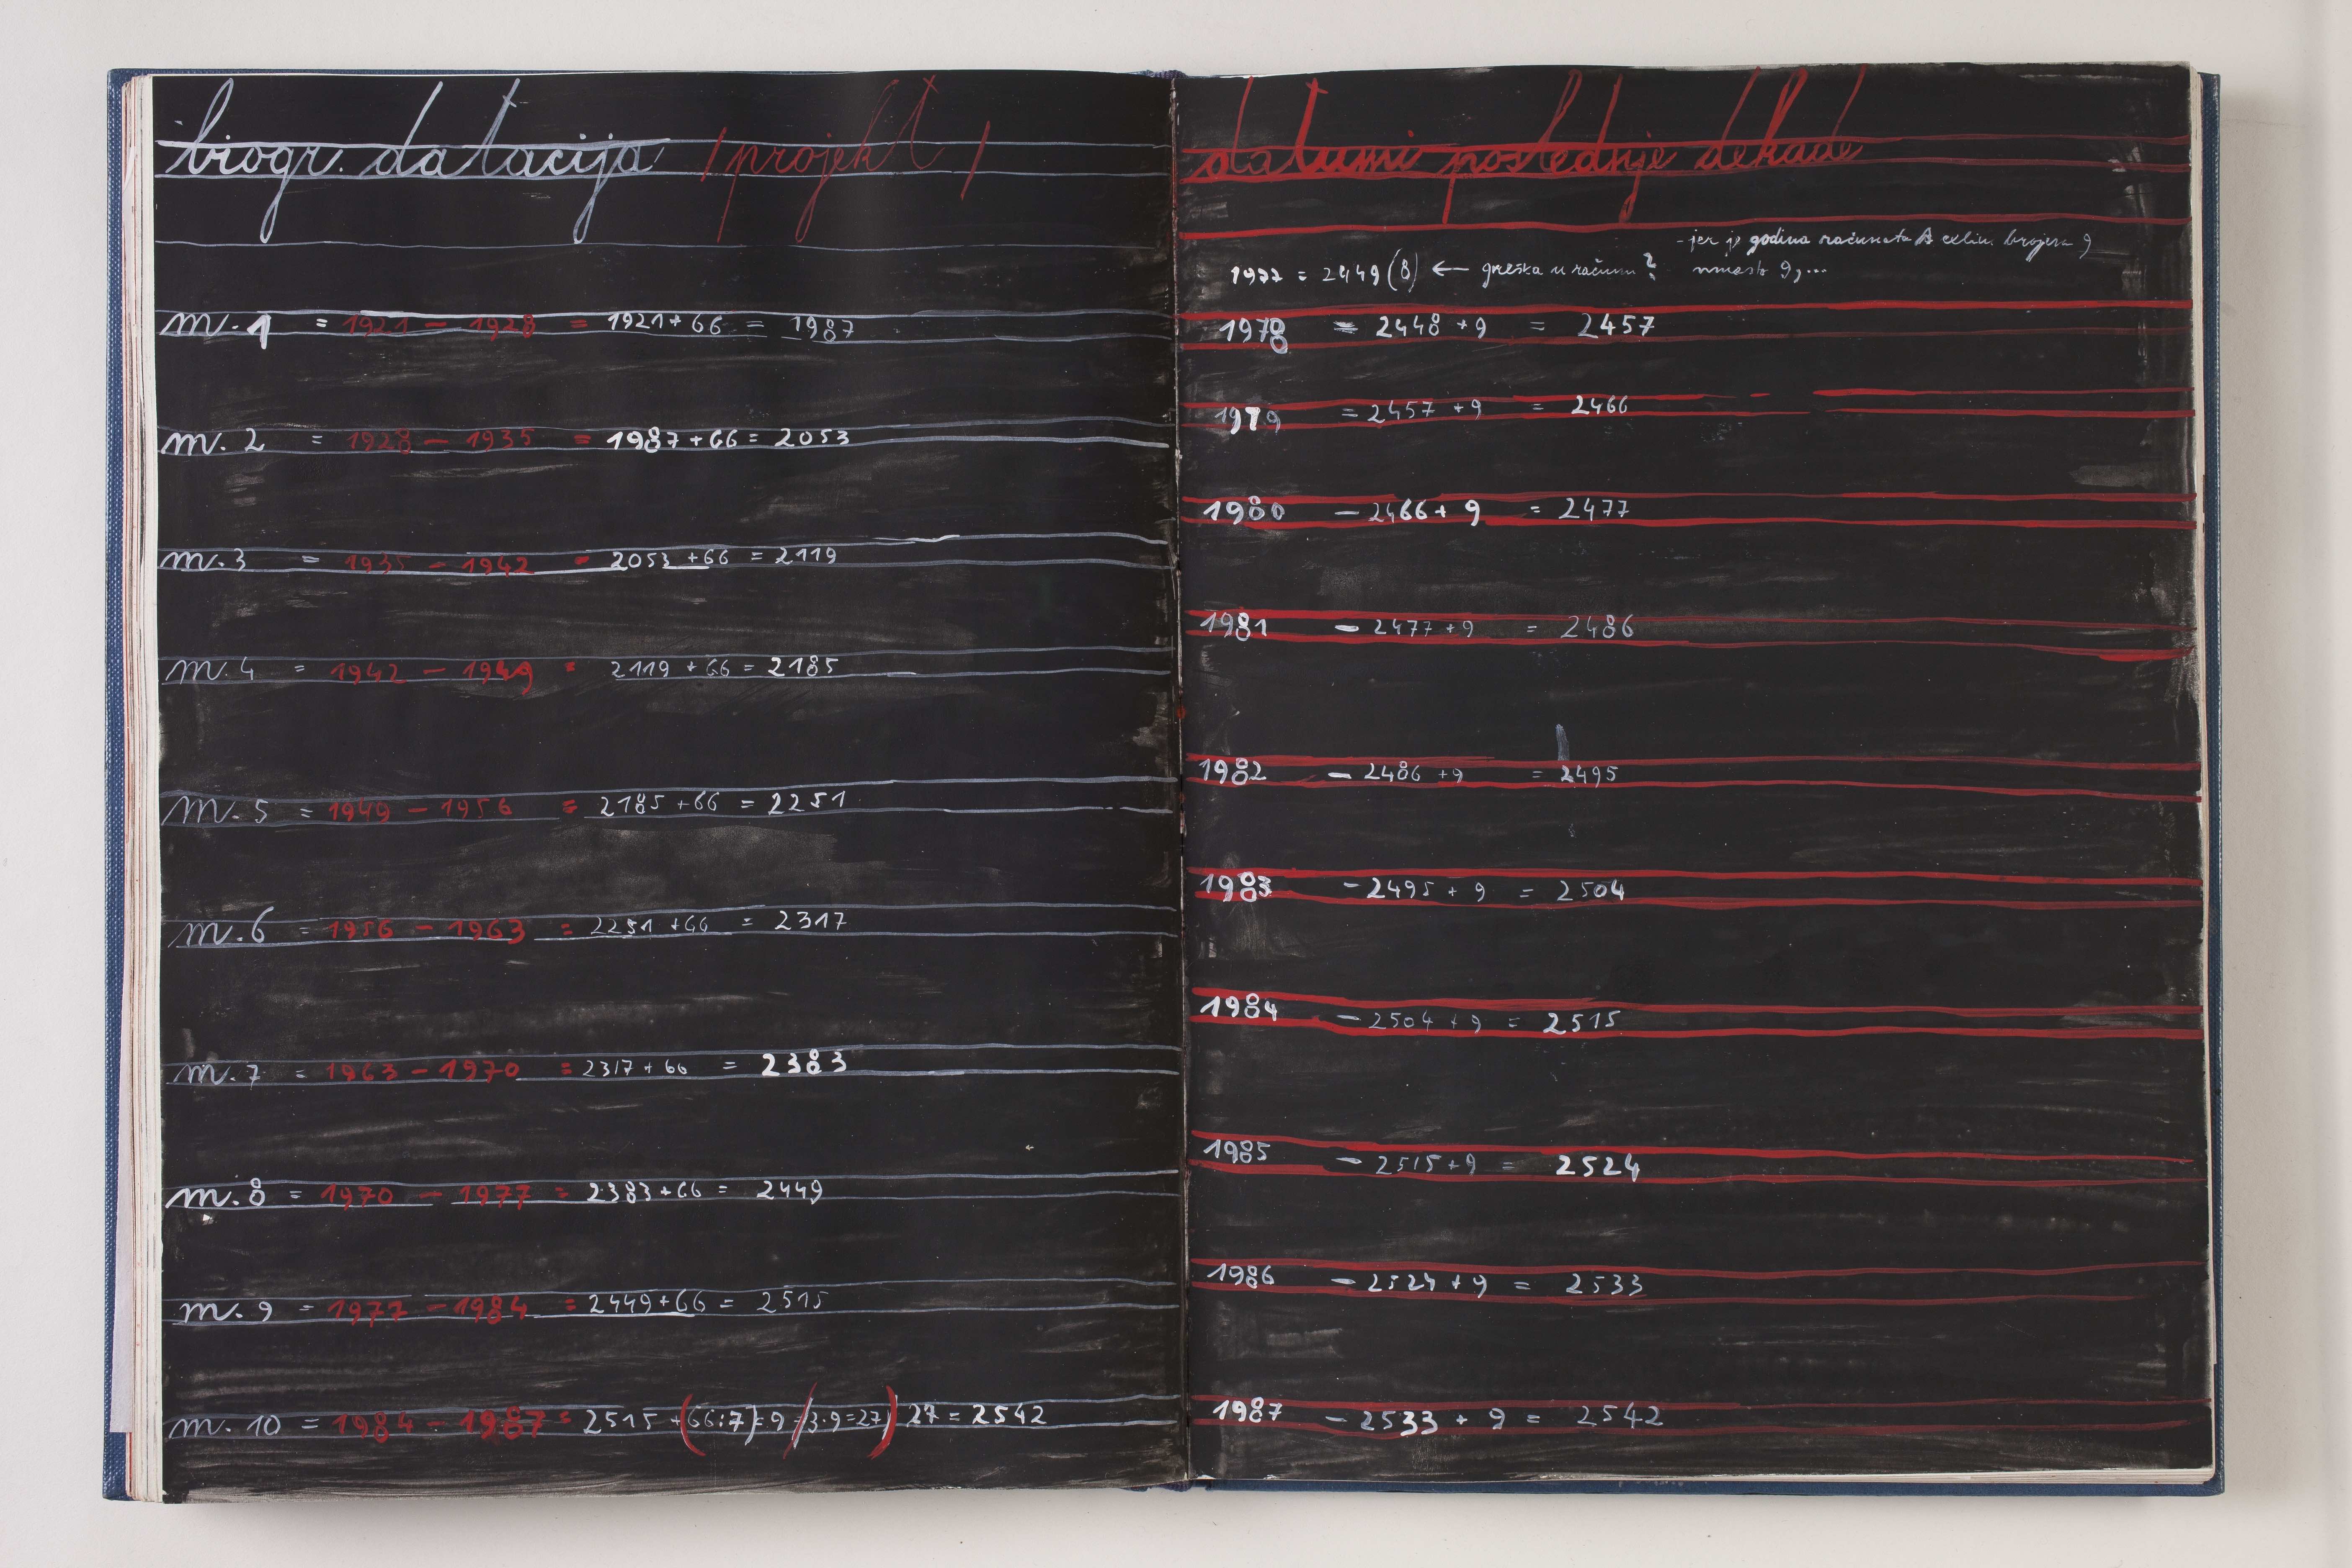 biogr. datacija /projekt/
m. 1 = 1921 – 1928 = 1921+66 = 1987
m. 2 = 1928 – 1935 = 1987+66 = 2053
m. 3 = 1935 – 1942 = 2053+66 = 2119
m. 4 = 1942 – 1949 = 2119+66 = 2185
m. 5 = 1949 – 1956 = 2185+66 = 2251
m. 6 = 1956 – 1963 = 2251+66 = 2317
m. 7 = 1963 – 1970 = 2317+66 = 2383
m. 8 = 1970 – 1977 = 2383+66 = 2449
m. 9 = 1977 – 1984 = 2449+66 = 2515
m. 10 = 1984 – 1987 = 2515+(66:7)=9 /3·9=27) 27 = 2542
datumi poslednje dekade
- jer je godina računata brojem 9
1977 = 2449(8) ← greška u računu? umesto 9,...
1978 = 2448+9 = 2457
1979 = 2457+9 = 2466
1980 – 2466+9 = 2477
1981 – 2477+9 = 2486
1982 – 2486+9 = 2495
1983 – 2495+9 = 2504
1984 – 2504+9 = 2515
1985 – 2515+9 = 2524
1986 – 2524+9 = 2533
1987 – 2533+9 = 2542